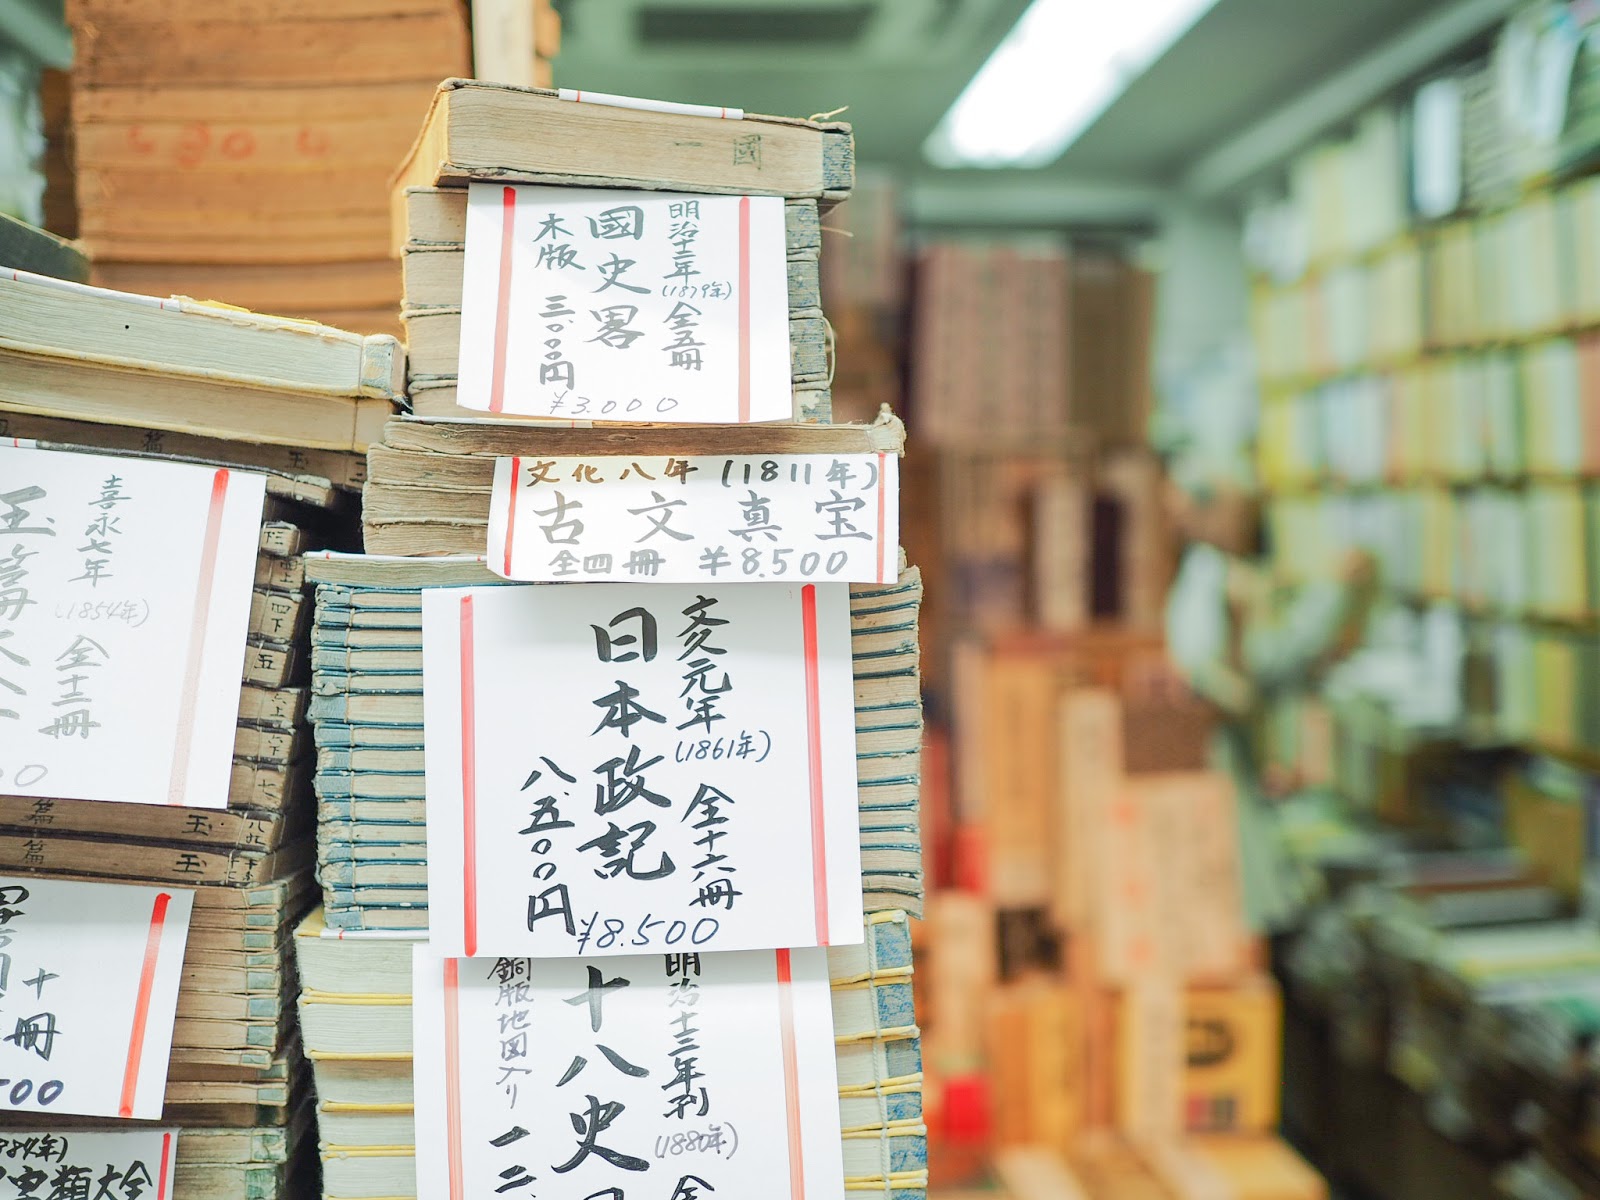 國
一
明治十二年
(1879年)
全五冊
國史畧
木版
三.〇〇〇円
¥3.000
文化八年(1811年)
古文真宝
全四冊 ¥8.500
文久元年
(1861年)
全十六冊
日本政記
八.五〇〇円
¥8.500
明治十三年刊
(1880年)
全
十八史
銅版地図入り
一二
喜永七年
(1854年)
全十二冊
玉篇大全
篇
玉
篇
玉
篇
玉
十冊
500
字類大全